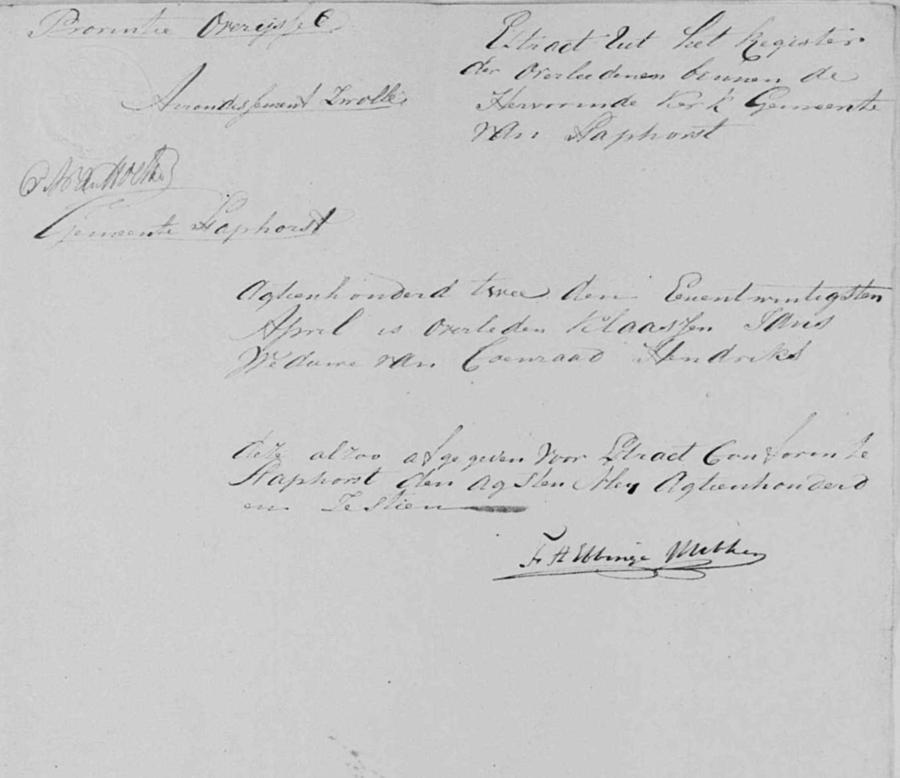 Provintie Overijssel
Arrondissement Zwolle
Gemeente Staphorst
Extract Uut het Register
der Overleedenen bennen de
Hervormde Kerk Gemeente
van Staphorst
Agtienhonderd twee den Eenentwintigsten
April is Overleden Klaasjen Jans
Weduwe van Coenraad Hendriks
deze alzoo afgegeven voor Extract Conform te
Staphorst den Agsten Mey Agtienhonderd
en Zestien
F: H Ebbinge Wubben